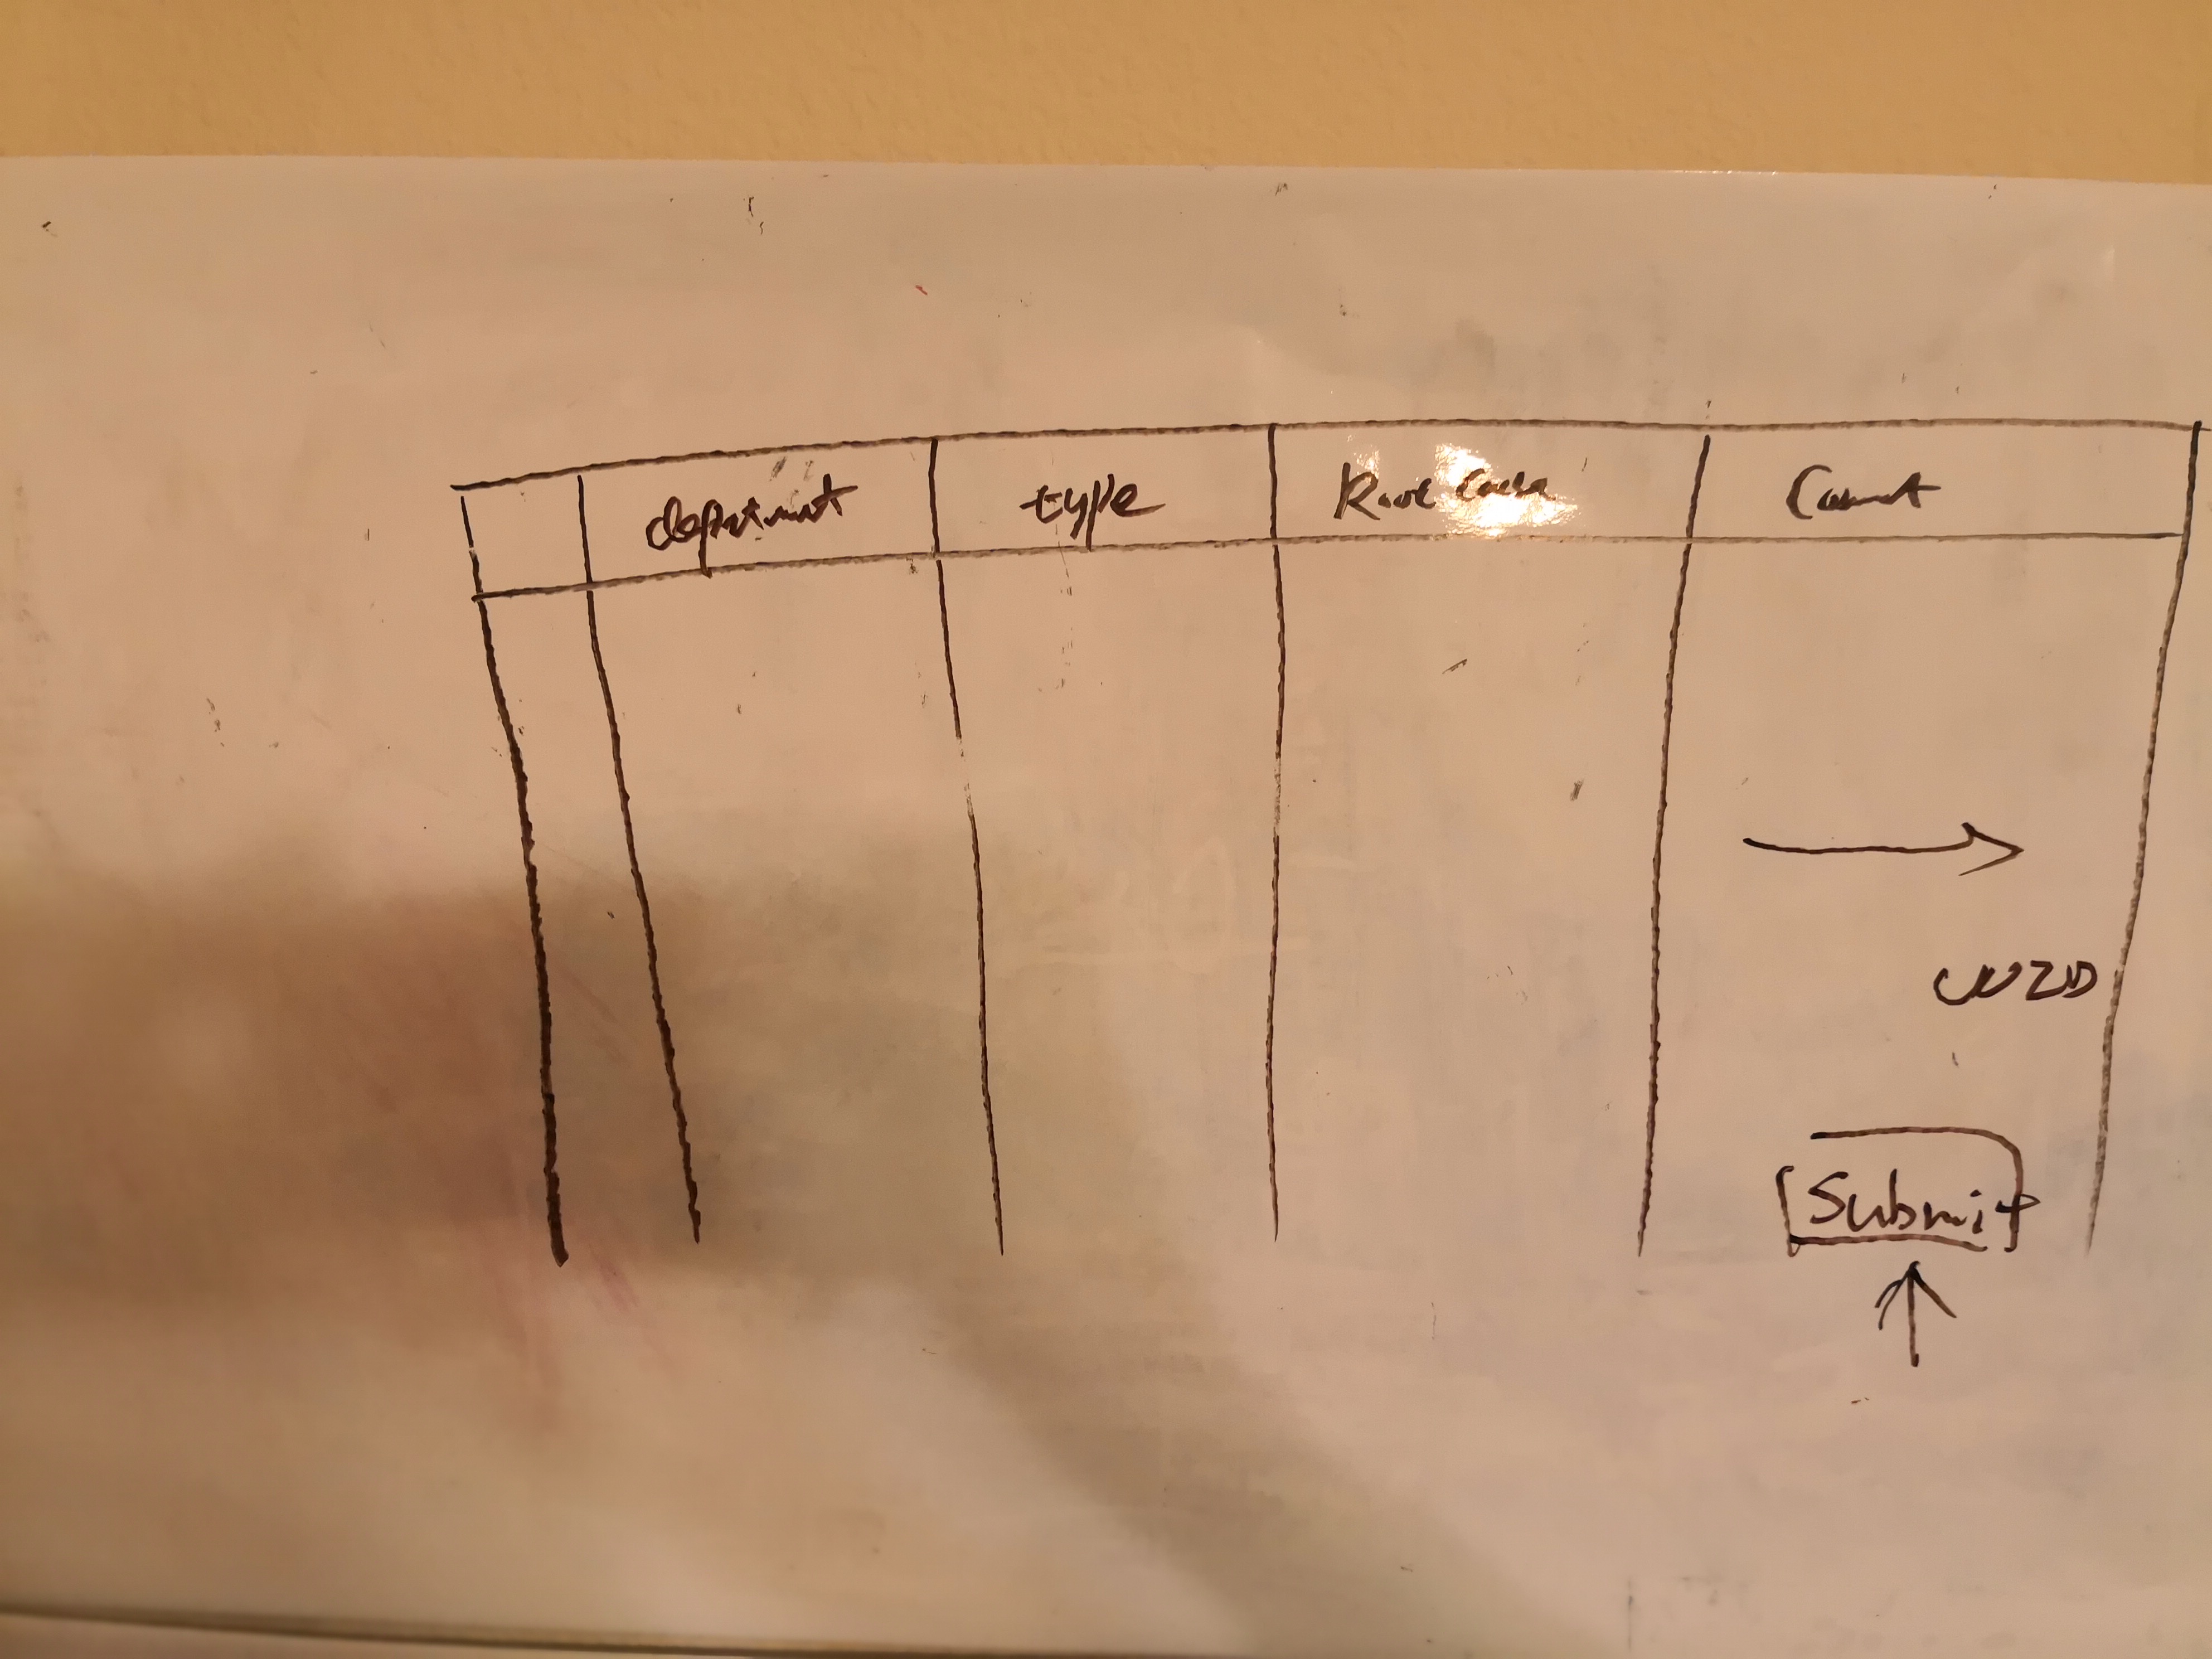 department type Root Cause Comment
UUID
Submit